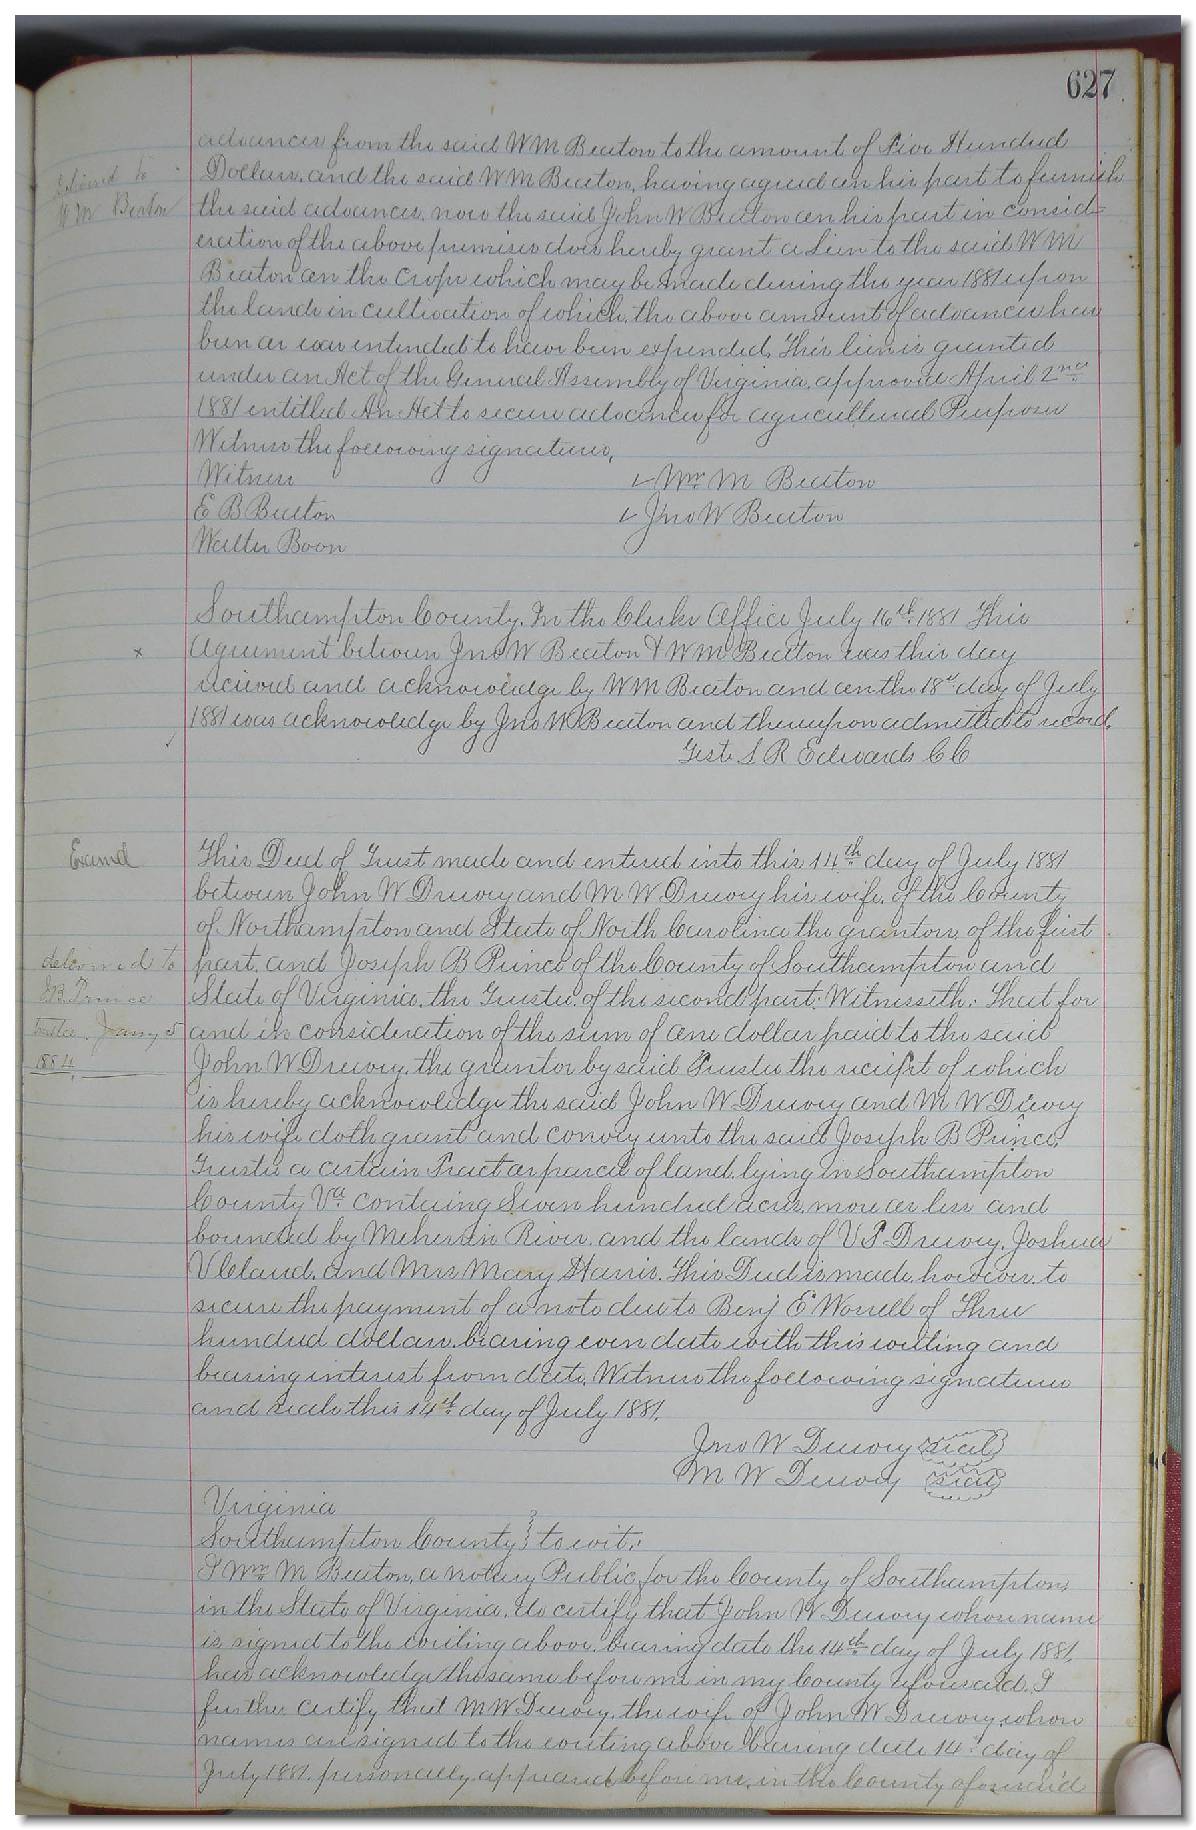 627
advances from the said W M Beaton to the amount of Five Hundred
Dollars, and the said W M Beaton, having agreed on his part to furnish
the said advances, now the said John W Beaton on his part in consid-
eration of the above premises does hereby grant a lien to the said W M
Beaton on the Crops which may be made during the year 1881 upon
the lands in cultivation of which, the above amount of advances have
been or was intended to have been expended. This lien is granted
under an Act of the General Assembly of Virginia, approved April 2nd
1881 entitled An Act to secure advances for agricultural Purposes
Witness the following signatures,
Witness
Wm M Beaton
E B Beaton
Jno W Beaton
Walter Boon
delivered to
W M Beaton
Southampton County. In the Clerks Office July 16th 1881 This
Agreement between Jno W Beaton & W M Beaton was this day
received and acknowledge by W M Beaton and on the 18th day of July
1881 was acknowledge by Jno W Beaton and thereupon admitted to record,
Teste S R Edwards C C
Examd
delivered to
J B Prince
trustee. Jany 5
1884
This Deed of Trust made and entered into this 14th day of July 1881
between John W Drewry and M W Drewry his wife, of the County
of Northampton and State of North Carolina the grantors, of the first
part, and Joseph B Prince of the County of Southampton and
State of Virginia, the Trustee, of the second part: Witnesseth: That for
and in consideration of the sum of one dollar paid to the said
John W Drewry, the grantor by said Trustee the receipt of which
is hereby acknowledge the said John W Drewry and M W Drewry
his wife doth grant and convey unto the said Joseph B Prince,
Trustee a certain Tract or parcel of land, lying in Southampton
County Va containg Seven hundred acres, more or less and
bounded by Meherrin River, and the lands of V S Drewry, Joshua
V Claud, and Mrs Mary Harris. This Deed is made, however, to
secure the payment of a note due to Benj E Worrell of Three
hundred dollars, bearing even date with this writing and
bearing interest from date, Witness the following signatures
and seals this 14th day of July 1881.
Jno W Drewry seal
M W Drewry seal
Virginia
Southampton County } to wit:
I Wm M Beaton, a notary Public, for the County of Southampton,
in the State of Virginia, do certify that John W Drewry whose name
is signed to the writing above, bearing date the 14th day of July 1881,
has acknowledge the same before me in my County aforesaid, I
further certify that M W Drewry, the wife of John W Drewry, whose
names are signed to the writing above bearing date 14th day of
July 1881. personally appeared before me, in the County aforesaid